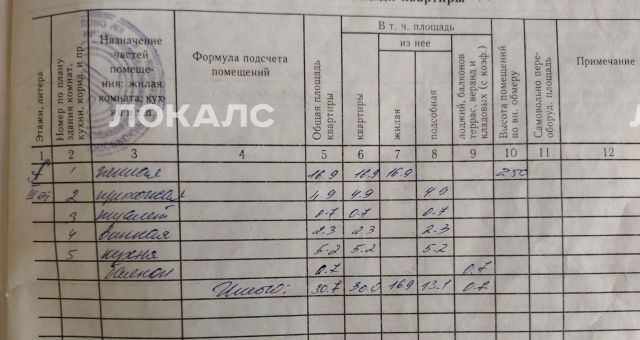 площади квартиры
Этажи, литера
Номер по плану здания комнат, кухни, корид. и пр.
Назначение частей помещения: жилая комната, кух-
Формула подсчета помещений
Общая площадь квартиры
В т. ч. площадь
из нее
квартиры
жилая
подсобная
лоджий, балконов террас, веранд и кладовых (с коэф.)
Высота помещений по вн. обмеру
Самовольно пере- оборуд. площадь
Примечание
ЛОКАЛС ЛОКАЛС
1 2 3 4 5 6 7 8 9 10 11 12
1 жилая 16.9 16.9 16.9 250
2 прихожая 4.9 4.9 4.9
3 туалет 0.7 0.7 0.7
4 ванная 2.3 2.3 2.3
5 кухня 5.2 5.2 5.2
балкон 0.7 0.7
Итого: 30.7 30.0 16.9 13.1 0.7